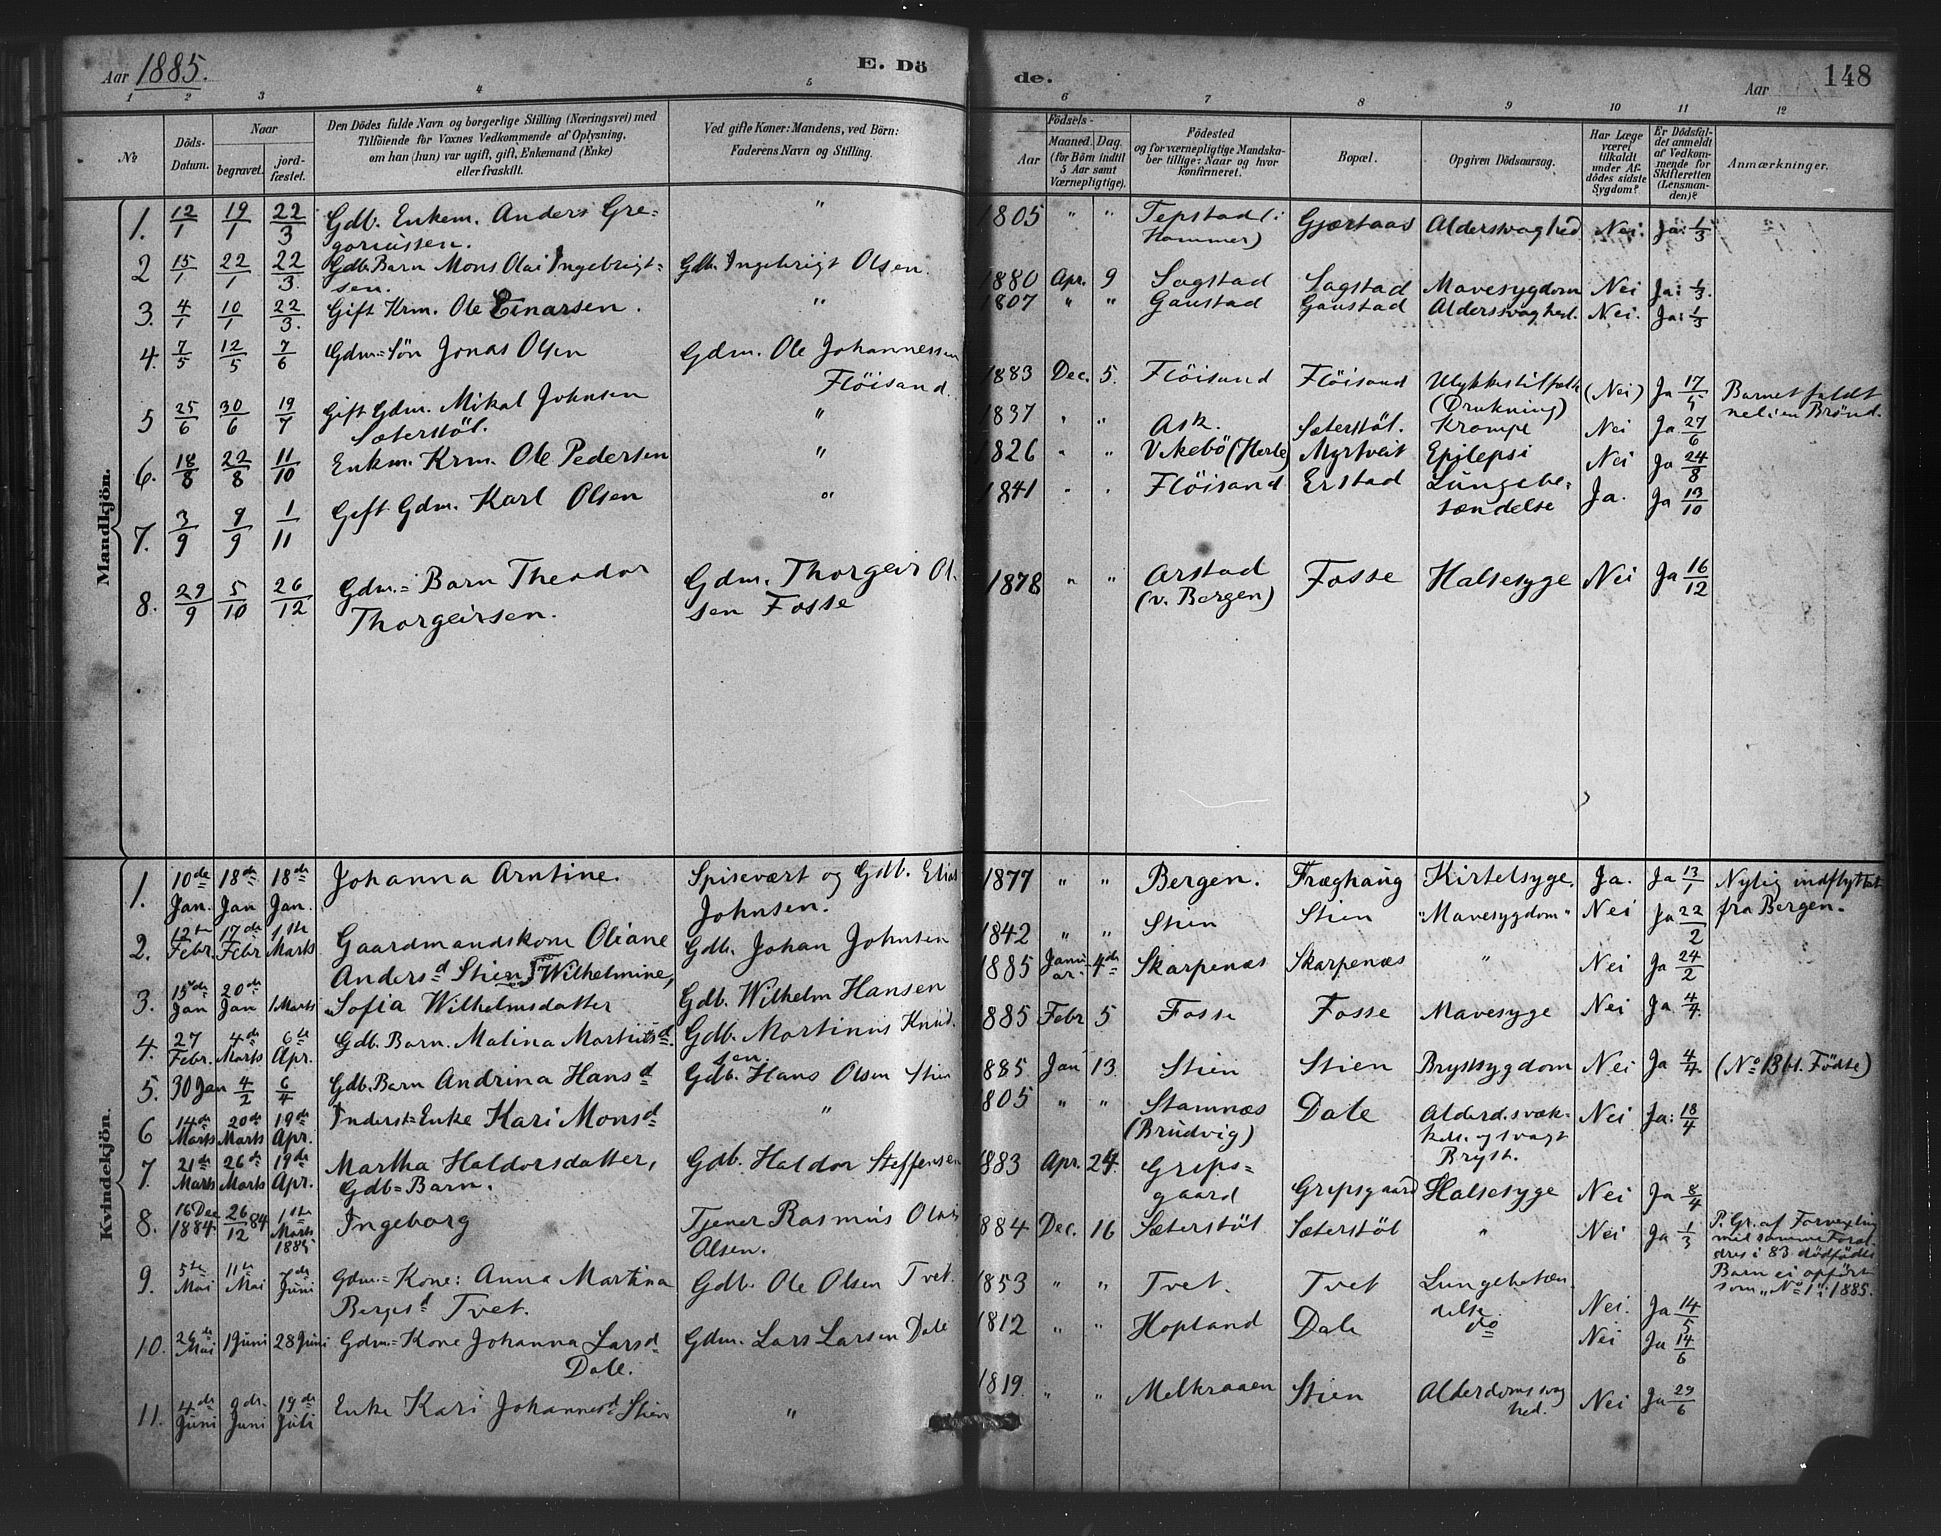 Aar 1885.
E. Dö
de.
Aar
148
1 2 3 4 5 6 7 8 9 10 11 12
No
Döds-Datum.
Naar
begravet.
jord-fæstet.
Den Dödes fulde Navn og borgerlige Stilling (Næringsvei) med
Tilföiende for Voxnes Vedkommende af Oplysning,
om han (hun) var ugift, gift, Enkemand (Enke)
eller fraskilt.
Ved gifte Koner: Mandens, ved Börn:
Faderens Navn og Stilling.
Födsels-
Aar
Maaned. Dag.
(for Börn indtil
5 Aar samt
Værnepligtige).
Födested
og for værnepligtige Mandska-
ber tillige: Naar og hvor
konfirmeret.
Bopæl.
Opgiven Dödsaarsag.
Har Læge
været
tilkaldt
under Af-
dödes sidste
Sygdom?
Er Dödsfal-
det anmeldt
af Vedkom-
mende for
Skifteretten
(Lensman-
den)?
Anmærkninger.
Mandkjön.
1. 12/1 19/1 22/3 Gdb. Enkem. Anders Gre= " 1805 " " Tepstad (: Gjertaas Aldersvaghed Nei. Ja: 1/3
goriussen. Hammer)
2 15/1 22/1 22/3. Gdb. Barn Mons Olai Ingebrigt= Gdb. Ingebrigt Olsen. 1880 Apr. 9 Sagstad Sagstad Mavesygdom Nei Ja: 1/3.
sen.
3. 4/1 10/1 22/3. Gift Krm. Ole Einarsen. " 1807 " " Gaustad Gaustad Alderssvaghed. Nei. Ja: 1/3
4. 7/5 12/5 7/6 Gdm=Søn Jonas Olsen Gdm. Ole Johannessen 1883 Dec. 5. Flöisand Flöisand Ulykkestilfælde (Nei) Ja 17/5 Barnet faldt
Flöisand. (Drukning) ned i en Brønd.
5 25/6 30/6 19/7 Gift Gdm. Mikal Johnsen " 1837 " " Ask. Sæterstöl. Krampe Nei Ja 27/6
Sæterstöl.
6. 18/8 22/8 11/10 Enkm. Krm. Ole Pedersen " 1826 " " Vikebö (Herlö) Myrtveit Epilepsi Nei Ja 24/8
7. 3/9 9/9 1/11 Gift Gdm. Karl Olsen " 1841 " " Flöisand Erstad Lungebe= Ja. Ja 13/10
tændelse
8. 29/9 5/10 26/12 Gdm.=Barn Theodor Gdm. Thorgeir Ol. 1878 " " Arstad Fosse Halsesyge Nei Ja 16/12
Thorgeirsen. sen Fosse (v. Bergen)
Kvindekjön.
1. 10de Jan. 18de Jan 18de Jan. Johanna Arntine. Spisevært og Gdb. Elias 1877 " " Bergen. Træghaug Kirtelsyge. Ja. Ja 13/1 Nylig indflyttet
Johnsen. fra Bergen.
2. 12te Febr. 17de Febr 1ste Marts Gaardmandskone Oliane Gdb. Johan Johnsen 1842 " " Stien Stien "Mavesygdom" Nei Ja 22/2
Andersd Stien
3. 15de Jan 20de Jan 1 Marts Wilhelmine, Sofia Wilhelmsdatter Gdb. Wilhelm Hansen 1885 Januar. 4de Skarpenæs Skarpenæs " Nei Ja 24/2
4. 27 Febr. 4de Marts 6te Apr. Gdb. Barn. Malina Martinsd. Gdb. Martinus Knud- 885 Febr 5 Fosse Fosse Mavesyge Nei Ja 4/4
sen.
5. 30 Jan 4/2 6/4 Gdb. Barn Andrina Hansd Gdb. Hans Olsen Stien 885 Jan 13. Stien Stien Brystsygdom Nei Ja 4/4. (No 13 bl. Födte)
6 14de Marts 20de Marts 19de Apr. Inderst=Enke Kari Monsd " 805 " " Stamnæs Dale Alderd. svæk- Nei Ja: 18/4
(Brudvig) kelse og svagt
Bryst.
7. 21de Marts 26de Marts 19de Apr. Martha Haldorsdatter, Gdb. Haldor Steffensen 883 Apr. 24. Grips= Gripsgaard Halsesyge Nei Ja 8/4
Gdb=Barn. gaard
8. 16 Dec 1884. 26/12 84 1ste Marts 1885 Ingeborg Tjener Rasmus Olai 884 Dec. 16 Sæterstöl Sæterstöl " Nei Ja 1/3 P. Gr. af Forvexling
Olsen. med samme Foræl-
dres i 83 dödfödte
Barn ei opfört
som "No 1": 1885.
9. 5te Mai 11te Mai 7de Juni Gdm.=Kone: Anna Martina Gdb. Ole Olsen Tvet. 1853 " " Tvet. Tvet Lungebetæn- Nei. Ja 14/5
Bergsd Tvet. delse.
10. 26de Mai 1 Juni 28 Juni Gdm=Kone Johanna Larsd Gdm. Lars Larsen Dale 1812 " " Hopland Dale do Nei Ja 14/6
Dale.
11. 4de Juni 9de Juni 19de Juli Enke Kari Johannesd Stien " 1819. " " Melkraaen Stien Alderdomssvag Nei Ja 29/6
hed.